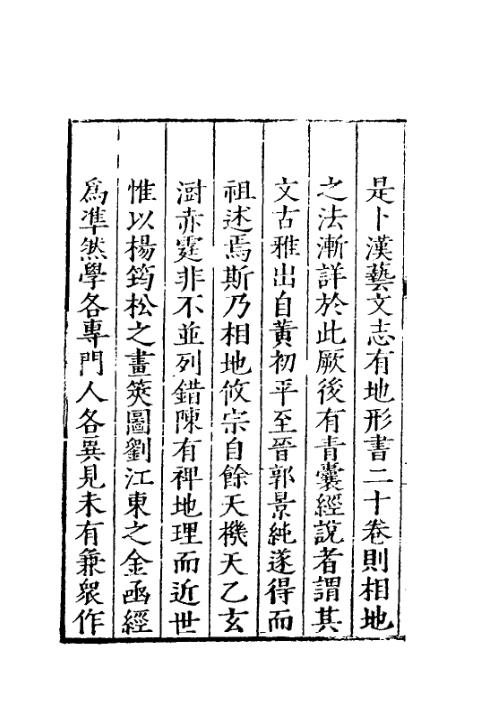 是卜漢藝文志有地形書二十卷則相地
之法漸詳於此厥後有青囊經說者謂其
文古雅出自黃初平至晉郭景純遂得而
祖述焉斯乃相地攸宗自餘天機天乙玄
澍赤霆非不並列錯陳有禆地理而近世
惟以楊筠松之畫筴圖劉江東之金函經
爲凖然學各專門人各異見未有兼衆作